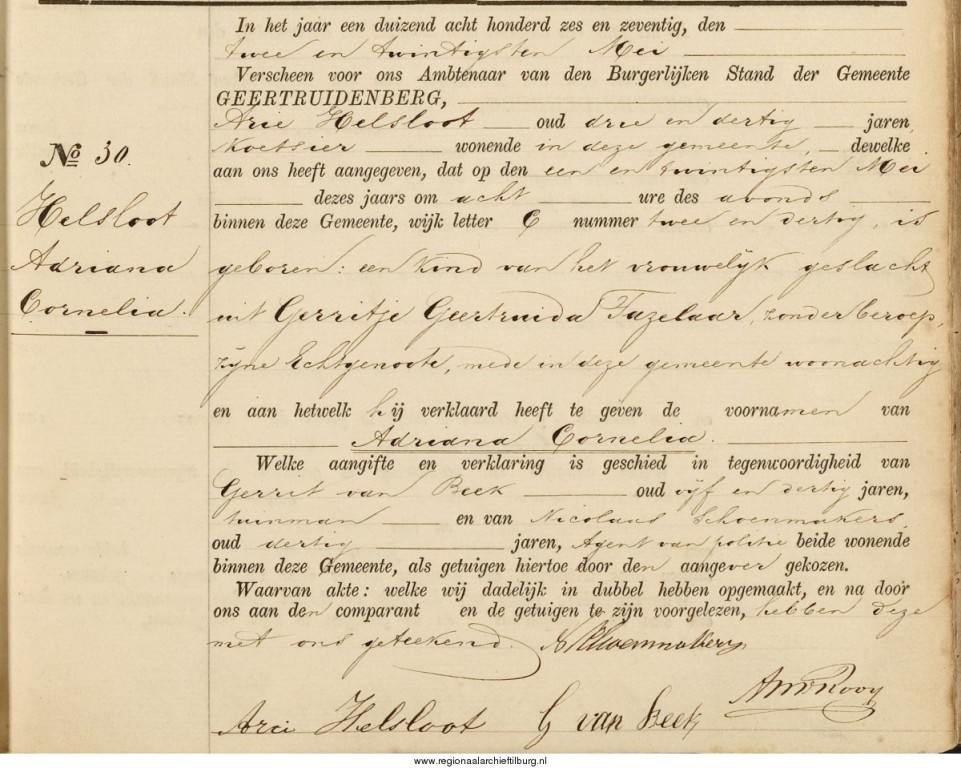 In het jaar een duizend acht honderd zes en zeventig, den
twee en twintigsten Mei
Verscheen voor ons Ambtenaar van den Burgerlijken Stand der Gemeente
GEERTRUIDENBERG,
Arie Helsloot oud drie en dertig jaren,
Koetsier wonende in deze gemeente, dewelke
aan ons heeft aangegeven, dat op den een en twintigsten Mei
dezes jaars om acht ure des avonds
binnen deze Gemeente, wijk letter C nummer twee en dertig, is
geboren: een kind van het vrouwelijk geslacht
uit Gerritje Geertruida Tazelaar, zonder beroep,
zijne Echtgenoote, mede in deze gemeente woonachtig
en aan hetwelk hij verklaard heeft te geven de voornamen van
Adriana Cornelia.
Welke aangifte en verklaring is geschied in tegenwoordigheid van
Gerrit van Beek oud vijf en dertig jaren,
tuinman en van Nicolaas Schoenmakers,
oud dertig jaren, Agent van politie beide wonende
binnen deze Gemeente, als getuigen hiertoe door den aangever gekozen.
Waarvan akte: welke wij dadelijk in dubbel hebben opgemaakt, en na door
ons aan den comparant en de getuigen te zijn voorgelezen, hebben deze
met ons geteekend.
Arie Helsloot G van Beek
No 30.
Helsloot
Adriana
Cornelia.
www.regionaalarchieftilburg.nl